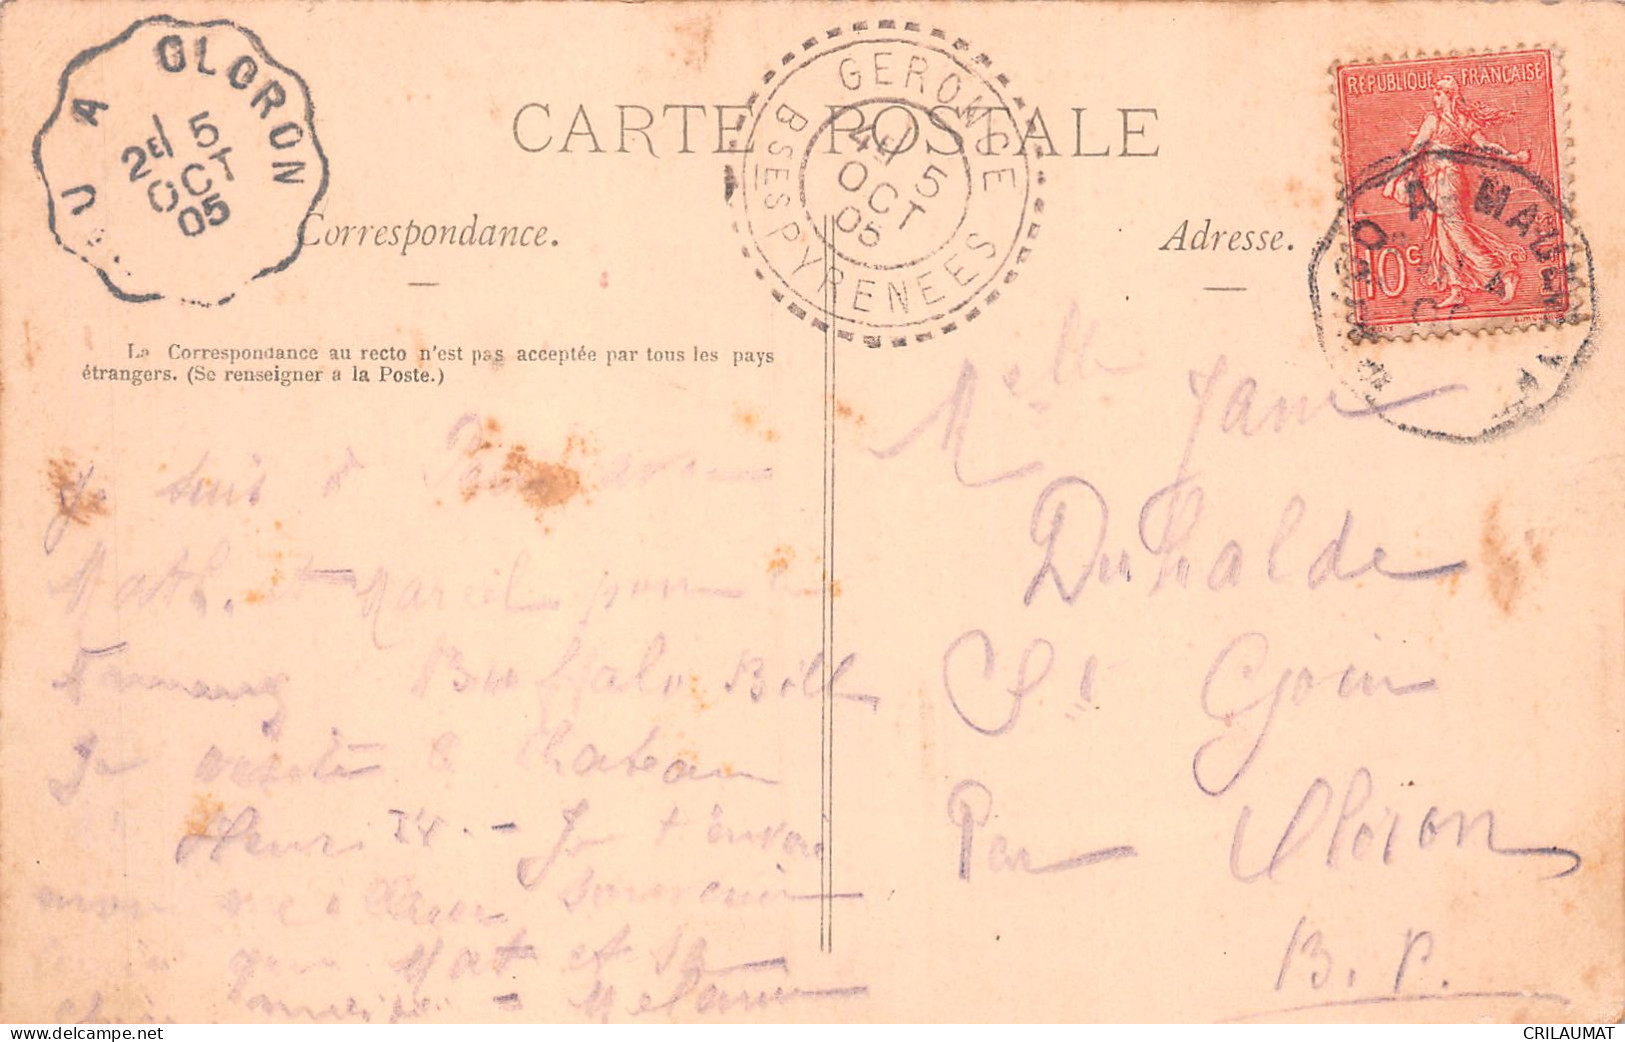 CARTE POSTALE
Correspondance.
Adresse.
La Correspondance au recto n'est pas acceptée par tous les pays
étrangers. (Se renseigner a la Poste.)
U A OLORON
2E 5
OCT
05
GERONCE
BSES PYRENEES
5
OCT
05
REPUBLIQUE FRANÇAISE
10c
A MAUL
Je suis à Pau avec
Math. et Marcel pour
Buffalo Bill
Je visite le Chateau
Henri IV. - Je t'envoie
mon meilleur souvenir
que Mat et sa
Melanie
Melle Jane
Duhalde
St Goin
Par Oloron
B. P.
delcampe.net
CRILAUMAT